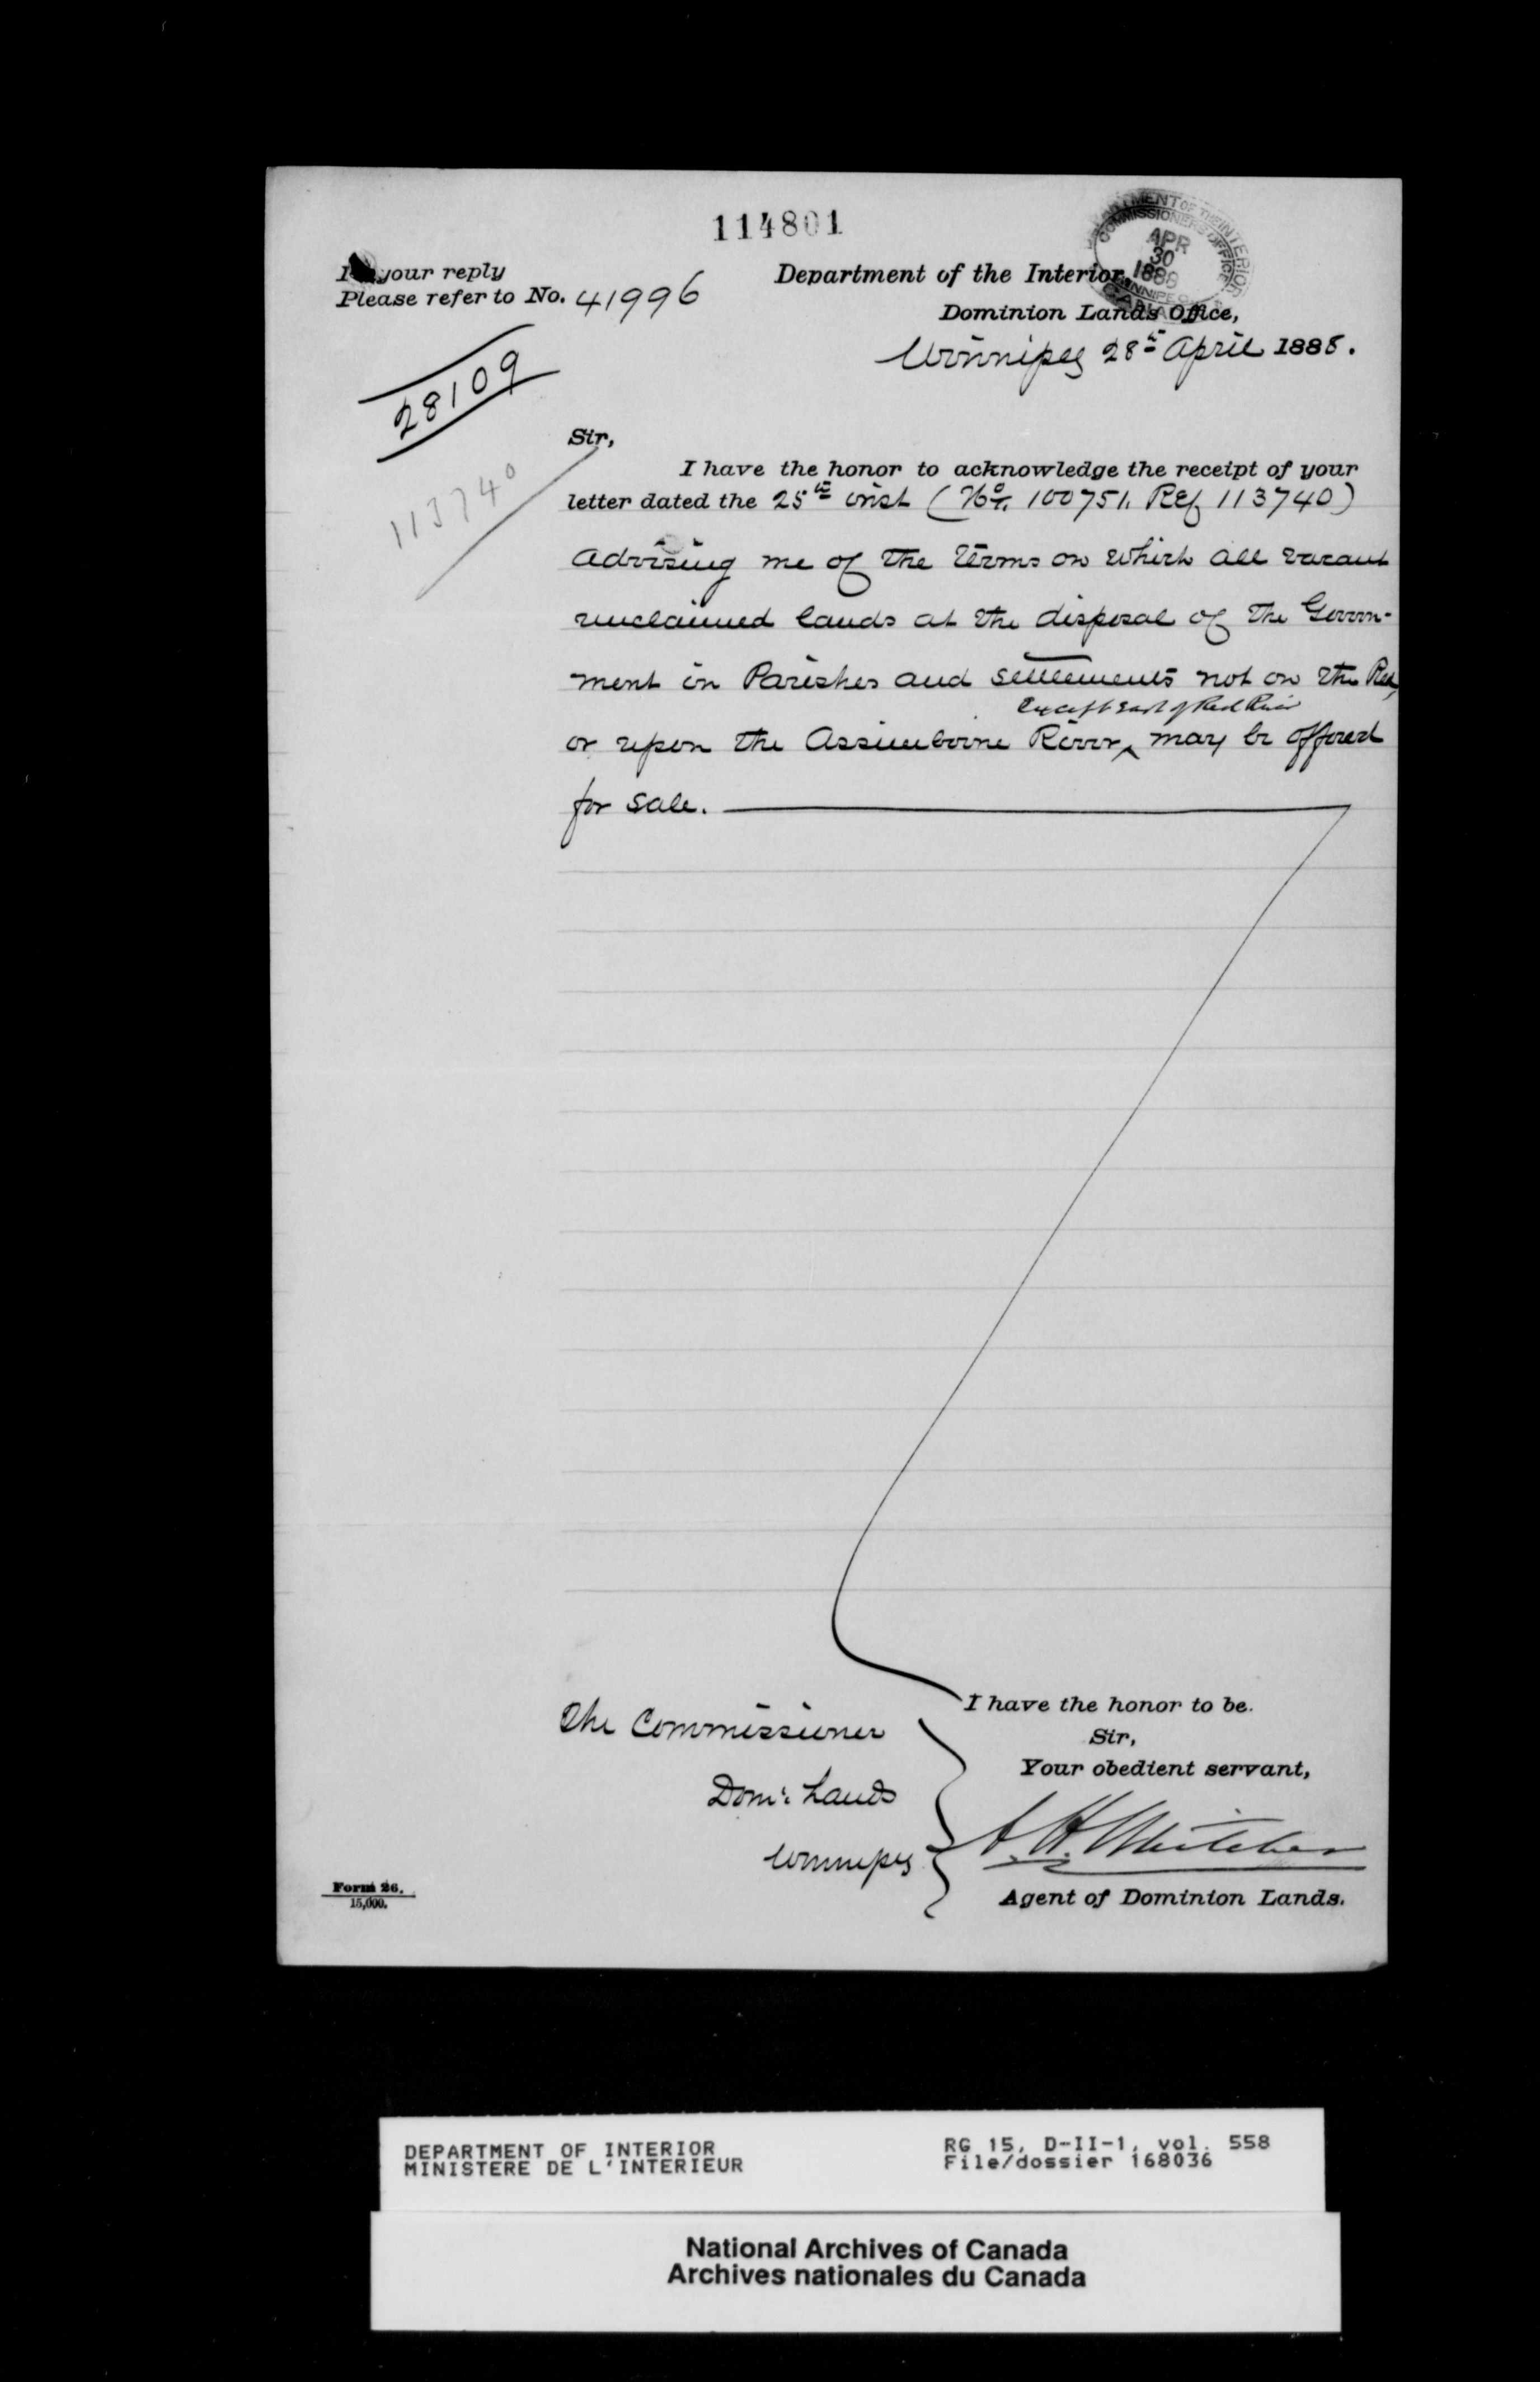 114801
DEPARTMENT OF THE INTERIOR
COMMISSIONER'S OFFICE
APR
30
1888
WINNIPEG
CANADA
In your reply
Please refer to No. 41996
Department of the Interior,
Dominion Lands Office,
Winnipeg 28th April 1888.
28109
113740
Sir,
I have the honor to acknowledge the receipt of your
letter dated the 25th inst (No. 100751. Ref 113740)
advising me of the terms on which all vacant
unclaimed lands at the disposal of the Govern-
ment in Parishes and settlements not on the Red,
except east of Red River
or upon the Assiniboine River ‸ may be offered
for sale.
I have the honor to be.
Sir,
Your obedient servant,
The Commissioner
Domn. Lands
Winnipeg
A. H. Whitcher
Agent of Dominion Lands.
Form 26.
15,000.
DEPARTMENT OF INTERIOR
MINISTERE DE L'INTERIEUR
RG 15, D-II-1, vol. 558
File/dossier 168036
National Archives of Canada
Archives nationales du Canada